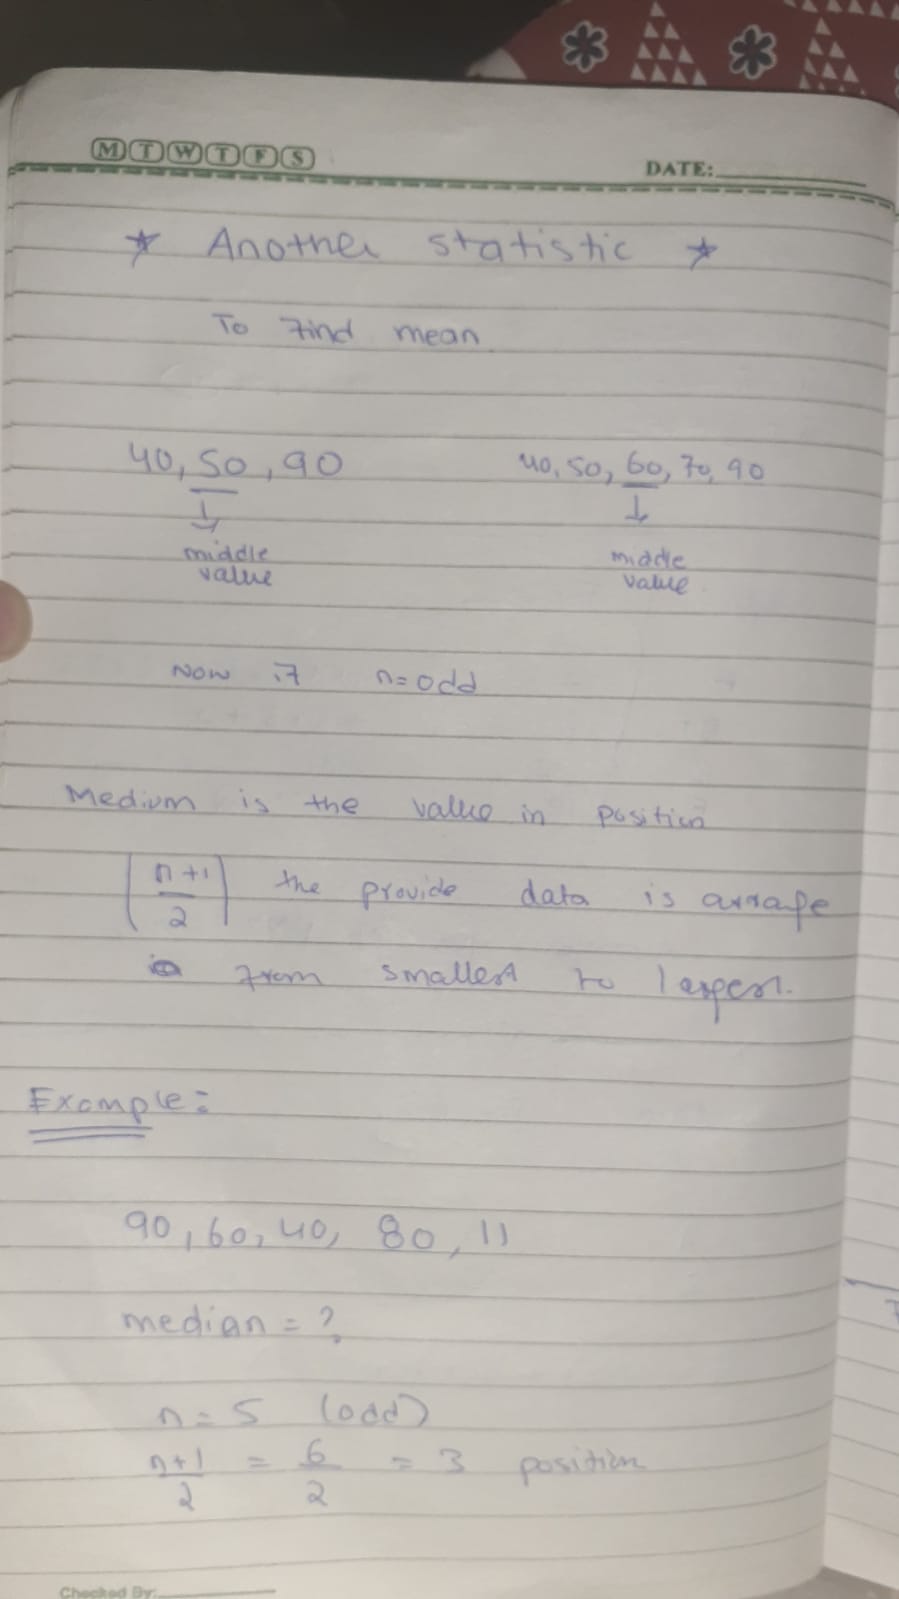 M T W T F S
DATE:
* Another statistic *
To find mean
40, 50, 90 40, 50, 60, 70, 90
middle middle
value value
Now if n=odd
Medium is the value in position
(n+1/2) the provide data is
from smallest to
Example:
90, 60, 40, 80, 11
median = ?
n = 5 (odd)
n+1/2 = 6/2 = 3 position
Checked By: